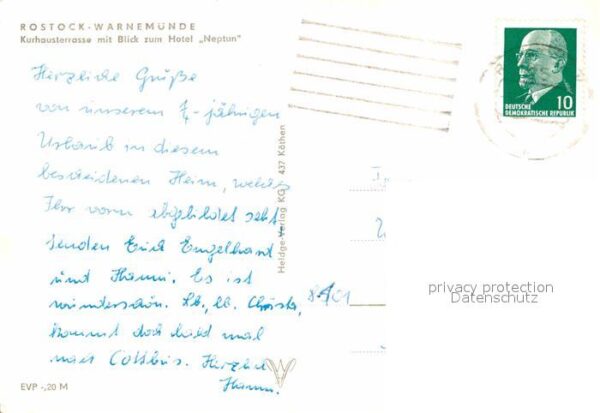 ROSTOCK-WARNEMÜNDE
Kurhausterrasse mit Blick zum Hotel „Neptun“
Herzliche Grüße
von unserem 7-jährigen
Urlaub in diesem
bescheidenen Heim, welches
Ihr vorn abgebildet seht
senden Euch Engelhard
und Hanni. Es ist
wunderschön. Lb., lb. Christa,
kommt doch bald mal
nach Cottbus. Herzlich
Hanni.
EVP -,20 M
Heldge-Verlag KG 437 Köthen
DEUTSCHE
DEMOKRATISCHE REPUBLIK
10
privacy protection
Datenschutz